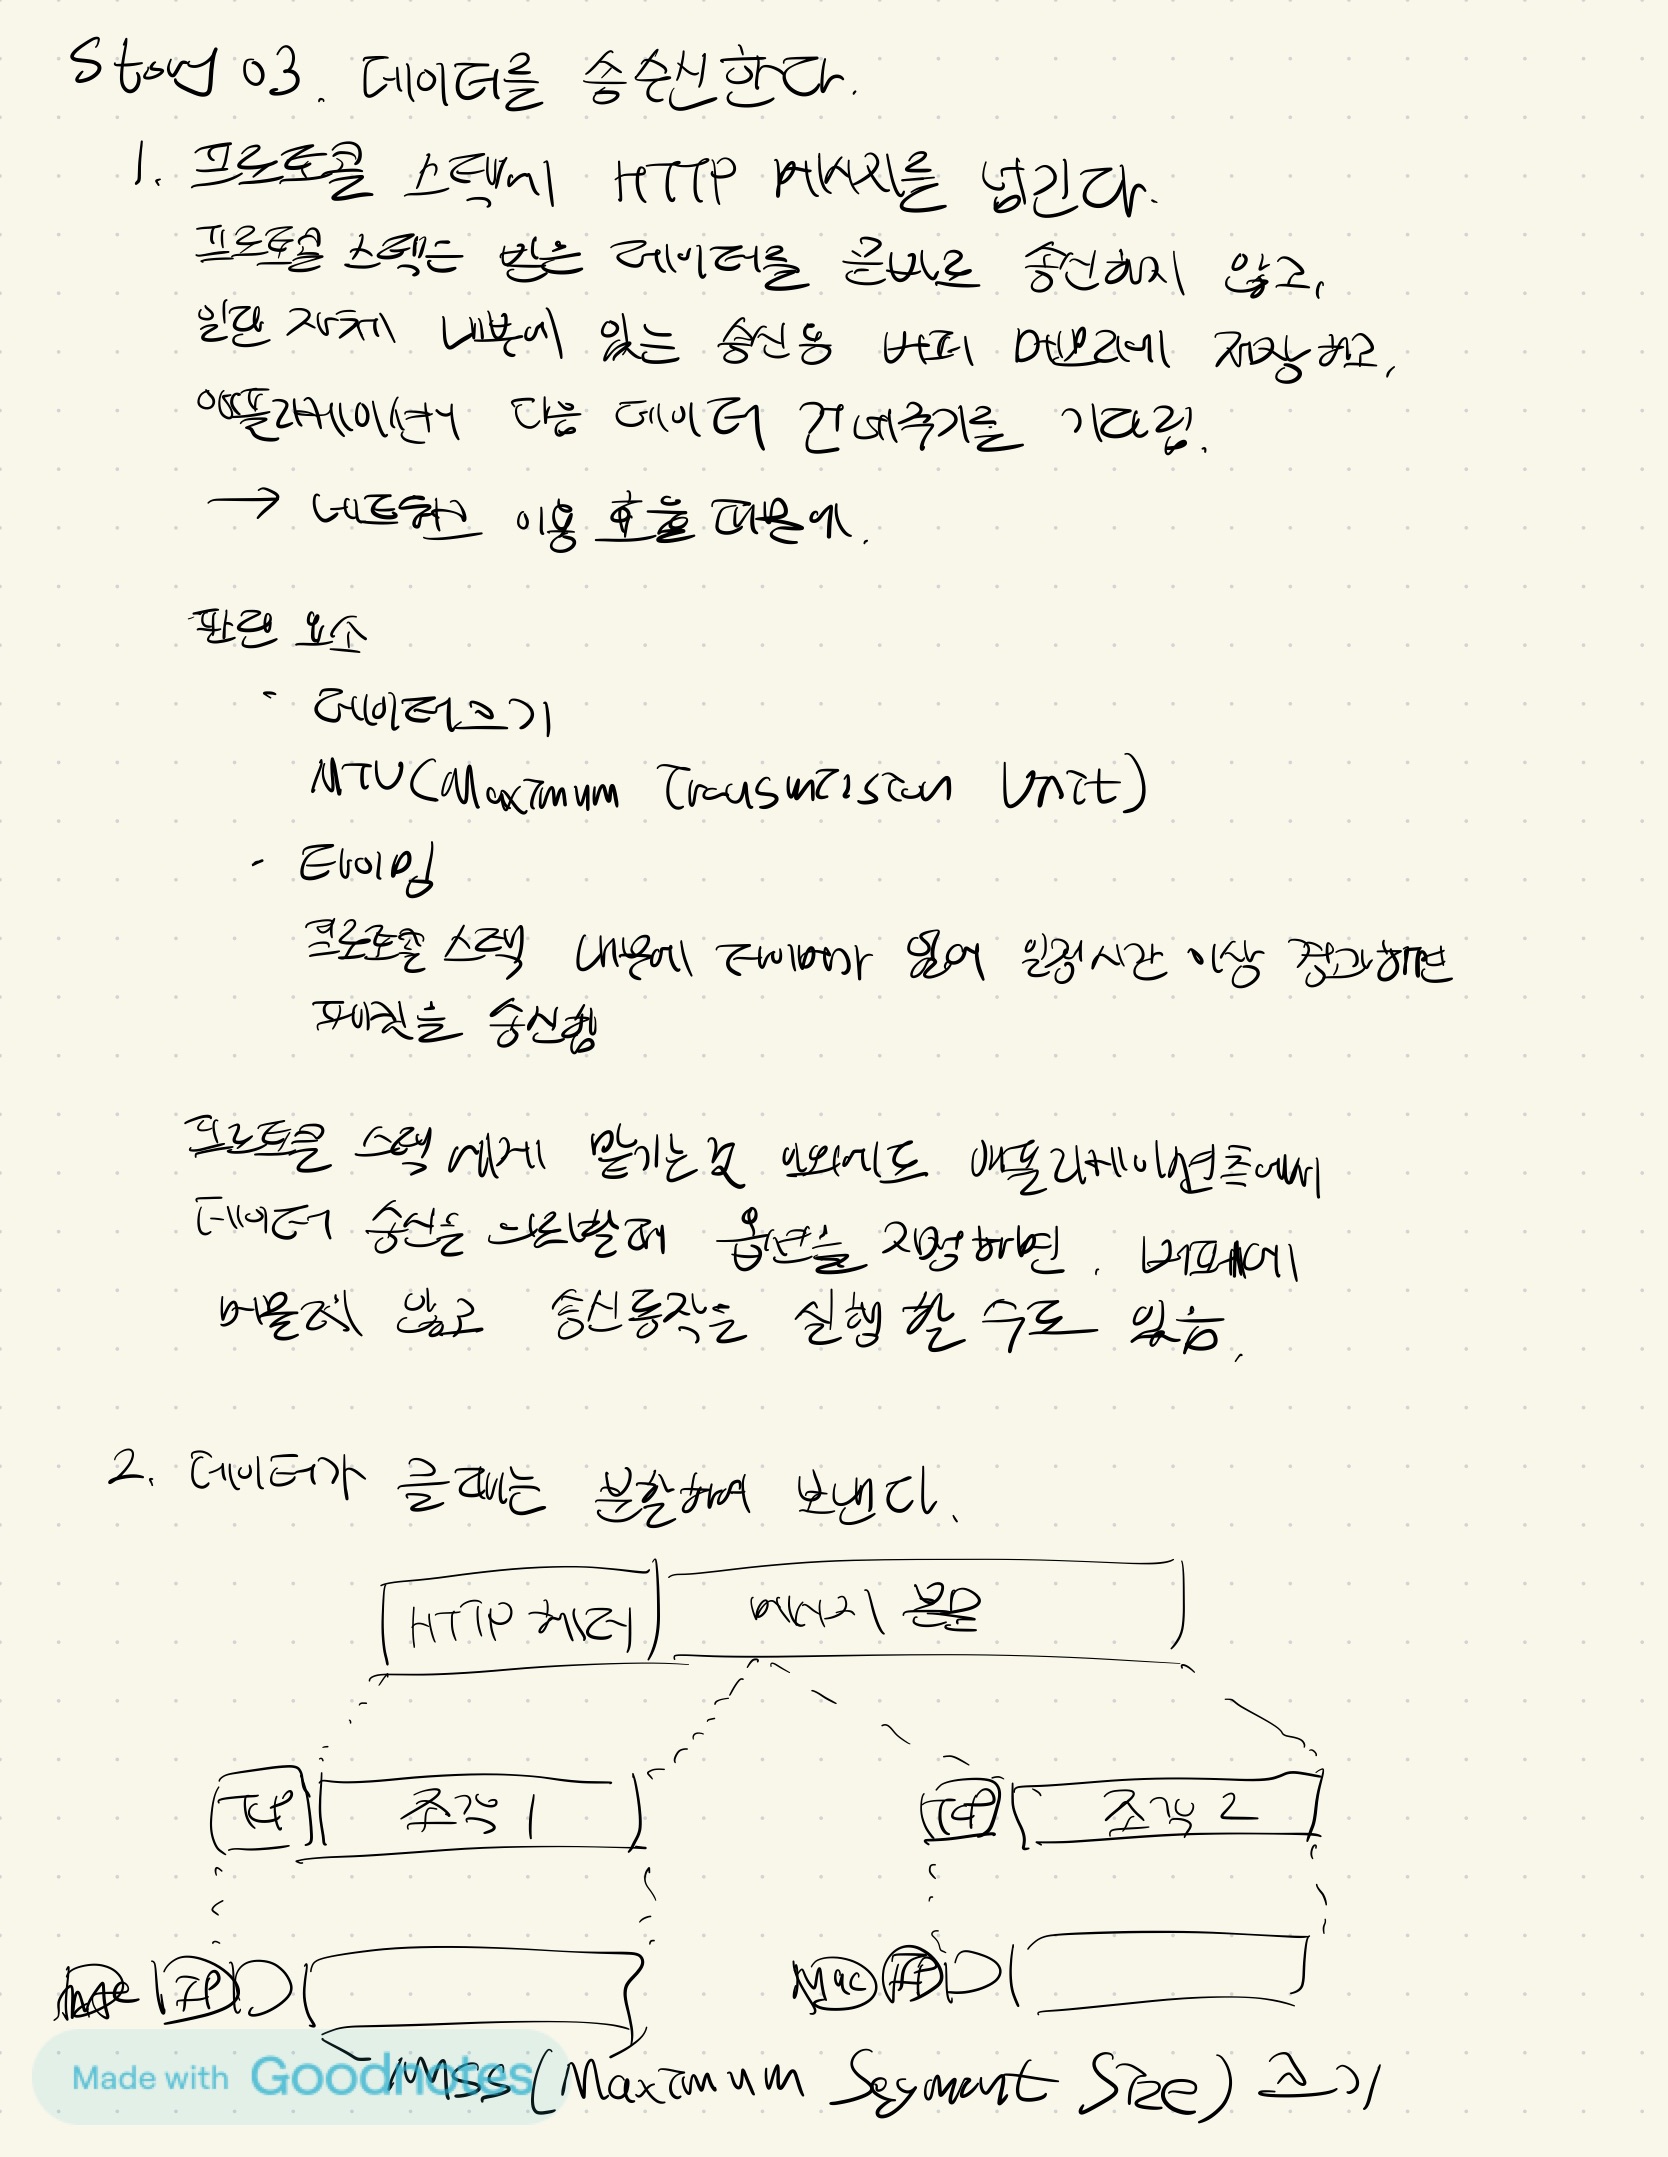 Story 03. 데이터를 송수신한다.
1. 프로토콜 스택에 HTTP 메시지를 넘긴다.
프로토콜 스택은 받은 데이터를 곧바로 송신하지 않고,
일단 자체 내부에 있는 송신용 버퍼 메모리에 저장하고,
애플리케이션이 다음 데이터 건네주기를 기다림.
→ 네트워크 이용 효율 때문에.
판단 요소
- 데이터 크기
MTU(Maximum Transmission Unit)
- 타이밍
프로토콜 스택 내부에 타이머가 있어 일정시간 이상 경과하면
패킷을 송신함
프로토콜 스택 에게 맡기는것 이외에도 애플리케이션측에서
데이터 송신을 의뢰할때 옵션을 지정하면. 버퍼에
머물지 않고 송신동작을 실행 할 수도 있음.
2. 데이터가 클 때는 분할하여 보낸다.
HTTP 헤더 메시지 본문
TCP 조각 1 TCP 조각 2
Mac IP Mac IP
MSS(Maximum Segment Size) 크기
Made with Goodnotes